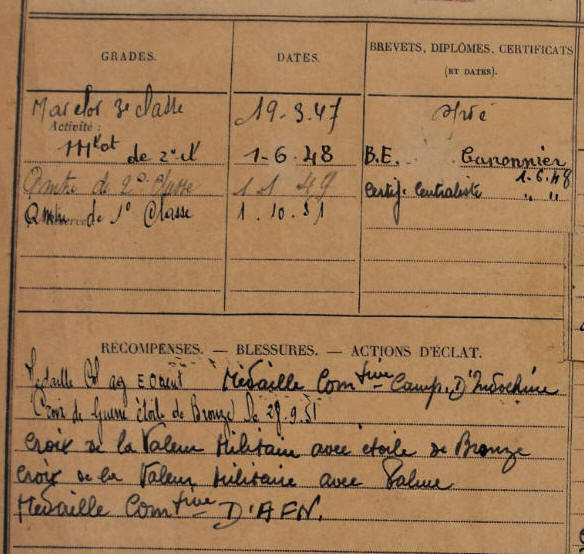 GRADES. DATES. BREVETS, DIPLÔMES, CERTIFICATS
(ET DATES).
Matelot 3e classe 19.3.47
Activité :
Mlot de 2e cl 1-6.48 B.E. Canonnier
1-6.48
Qmtre de 2e Classe 1 1 49 Certif. Centraliste " "
Réserve
Qmtre de 1e Classe 1.10.51
RÉCOMPENSES. — BLESSURES. — ACTIONS D'ÉCLAT.
Médaille Col ag E Orient Médaille Comtive Camp. D'Indochine
Croix de Guerre étoile de Bronze le 29.9.51
Croix de la Valeur Militaire avec étoile de Bronze
Croix de la Valeur Militaire avec Palme
Médaille Comtive D'AFN.